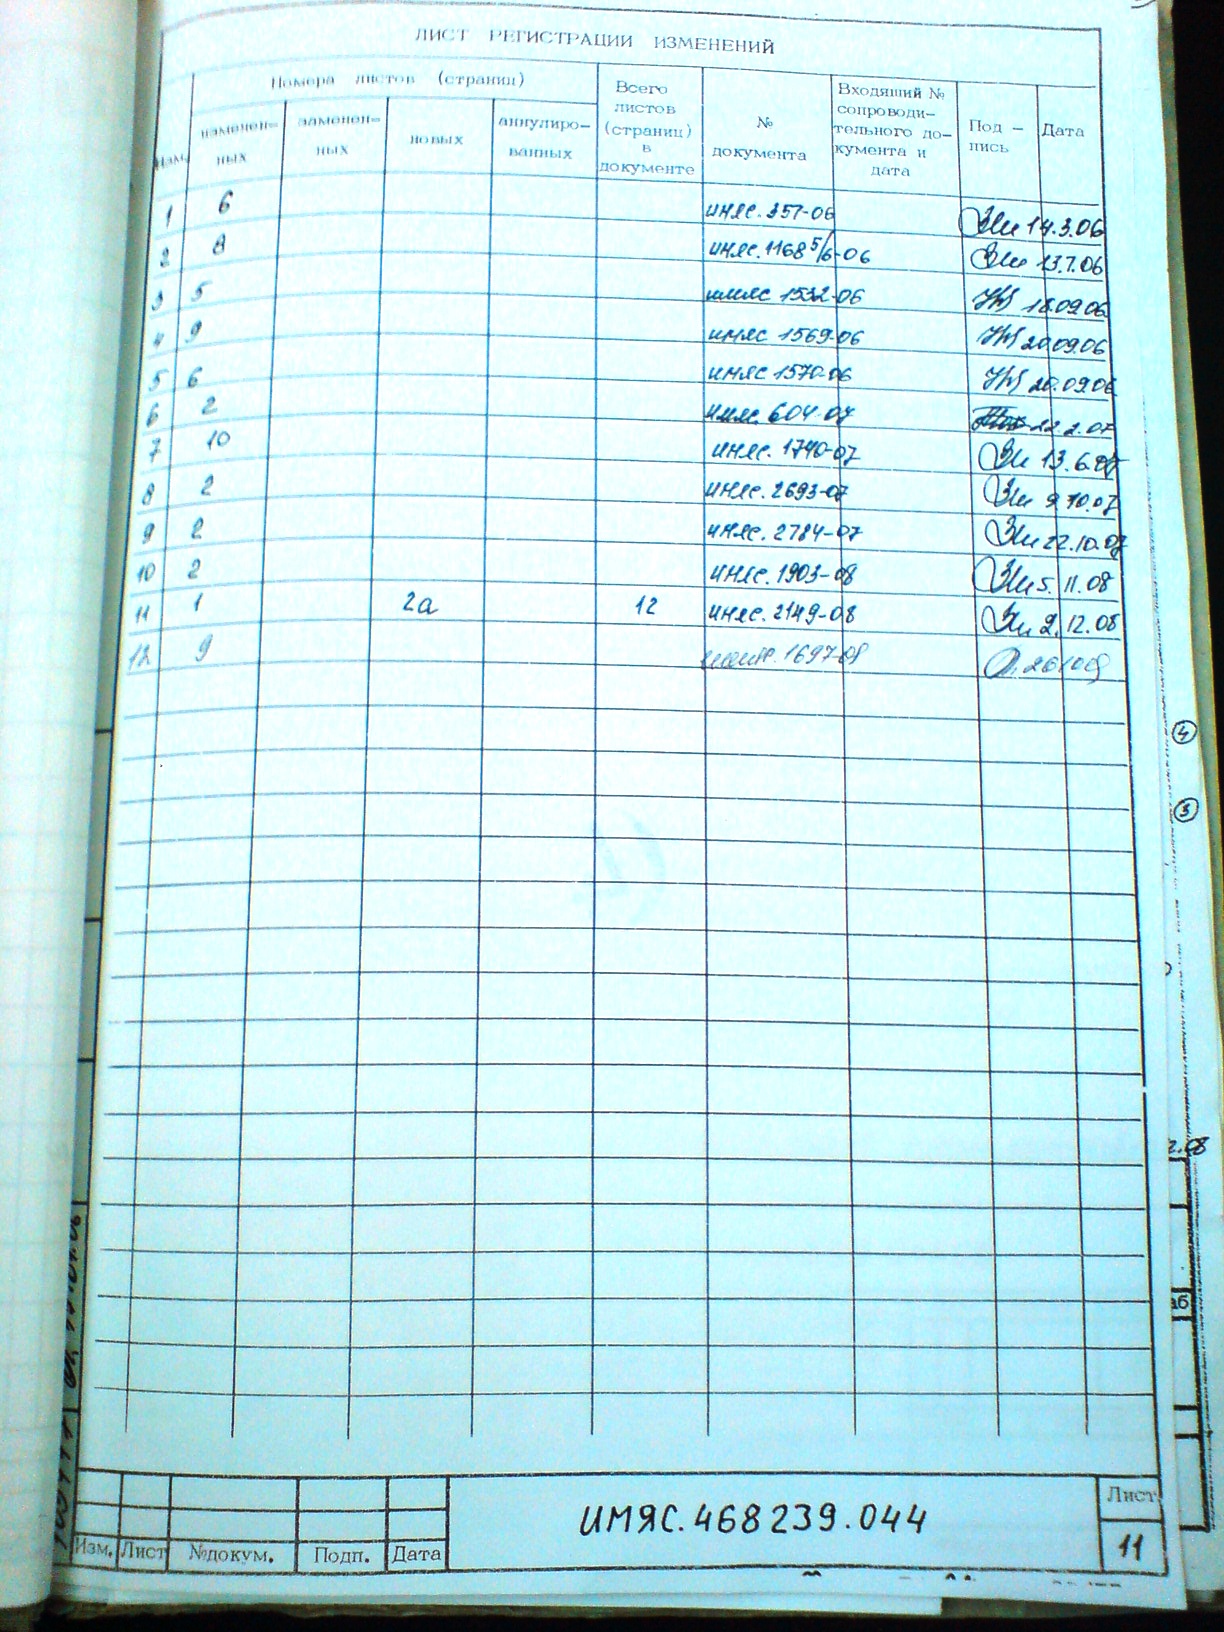 ЛИСТ РЕГИСТРАЦИИ ИЗМЕНЕНИЙ
Изм. Номера листов (страниц) Всего листов (страниц) в документе № документа Входящий № сопроводительного документа и дата Под-пись Дата
измененных замененных новых аннулированных
1 6 ИМЯС.357-06 14.3.06
2 8 ИМЯС.1168 5/6-06 13.7.06
3 5 ИМЯС 1532-06 18.09.06
4 9 ИМЯС 1569-06 20.09.06
5 6 ИМЯС 1570-06 20.09.06
6 2 ИМЯС 604-07 22.2.07
7 10 ИМЯС.1740-07 13.6.07
8 2 ИМЯС.2693-07 9.10.07
9 2 ИМЯС.2784-07 22.10.07
10 2 ИМЯС.1903-08 5.11.08
11 1 2а 12 ИМЯС.2149-08 2.12.08
12 9 1697-09
4
3
2.08
аб
ИМЯС.468239.044
Лист
11
Изм. Лист №докум. Подп. Дата